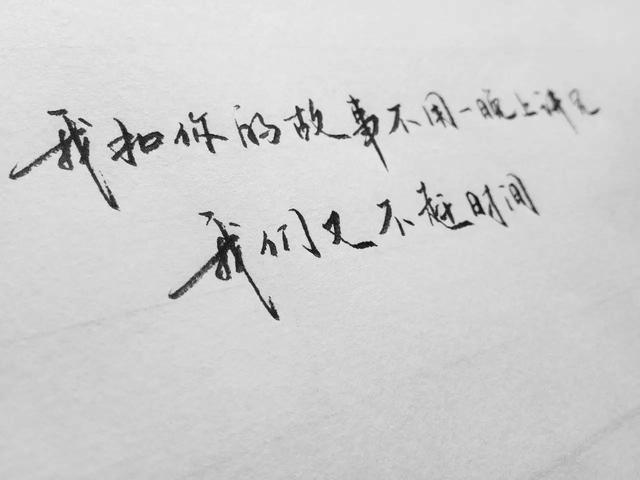 我和你的故事不用一晚上讲完
我们又不赶时间